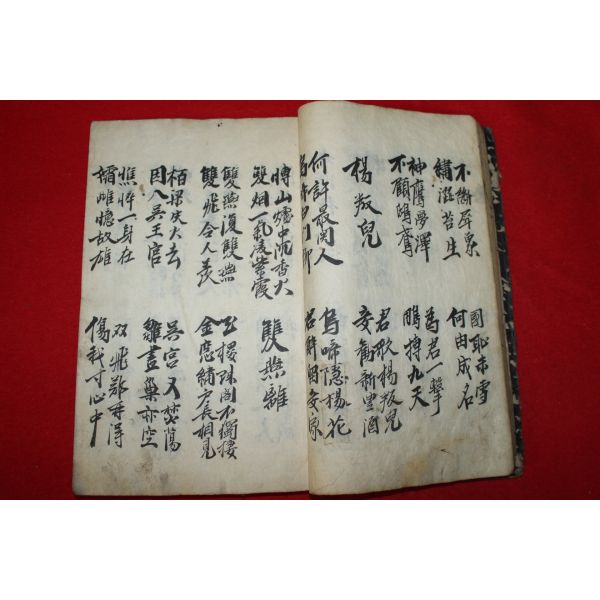 不斷犀象
繡澁苔生
國恥未雪
何由成名
神鷹夢澤
不顧鴟鳶
爲君一擊
鵬搏九天
楊叛兒
君歌楊叛兒
妾勸新豊酒
何許最関人
烏啼白門柳
烏啼隱楊花
君醉留妾家
博山爐中沉香火
雙烟一氣凌紫霞
雙燕離
雙燕復雙燕
雙飛令人羨
玉楼珠閣不獨棲
金窓繡戶長相見
栢梁失火去
因入吳王宮
吳宮又焚蕩
雛盡巢亦空
憔悴一身在
孀雌憶故雄
双飛難再得
傷我寸心中